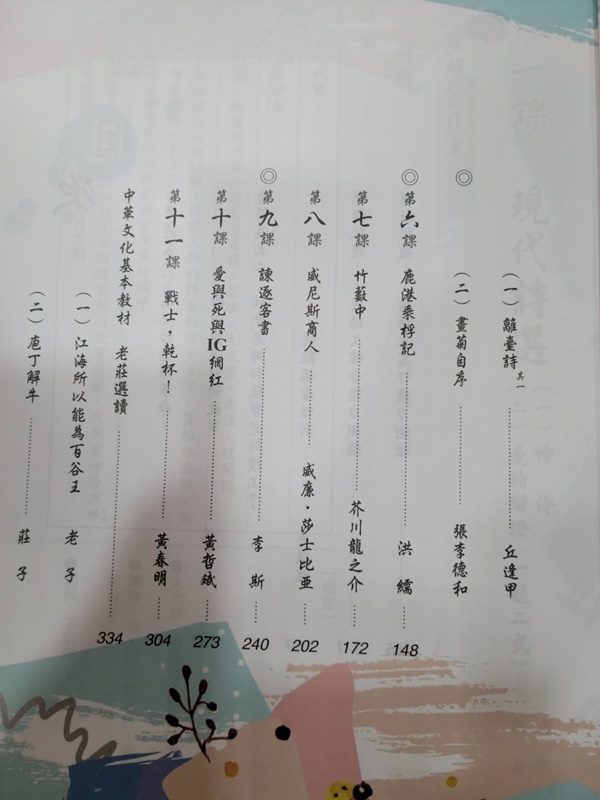 （一）離臺詩其一 …… 丘逢甲
◎（二）畫菊自序 …… 張李德和
◎第六課 鹿港乘桴記 …… 洪繻 …… 148
第七課 竹藪中 …… 芥川龍之介 …… 172
第八課 威尼斯商人 …… 威廉・莎士比亞 …… 202
◎第九課 諫逐客書 …… 李斯 …… 240
第十課 愛與死與IG網紅 …… 黃哲斌 …… 273
第十一課 戰士，乾杯！ …… 黃春明 …… 304
中華文化基本教材 老莊選讀 …… 334
（一）江海所以能為百谷王 老子
（二）庖丁解牛 …… 莊子